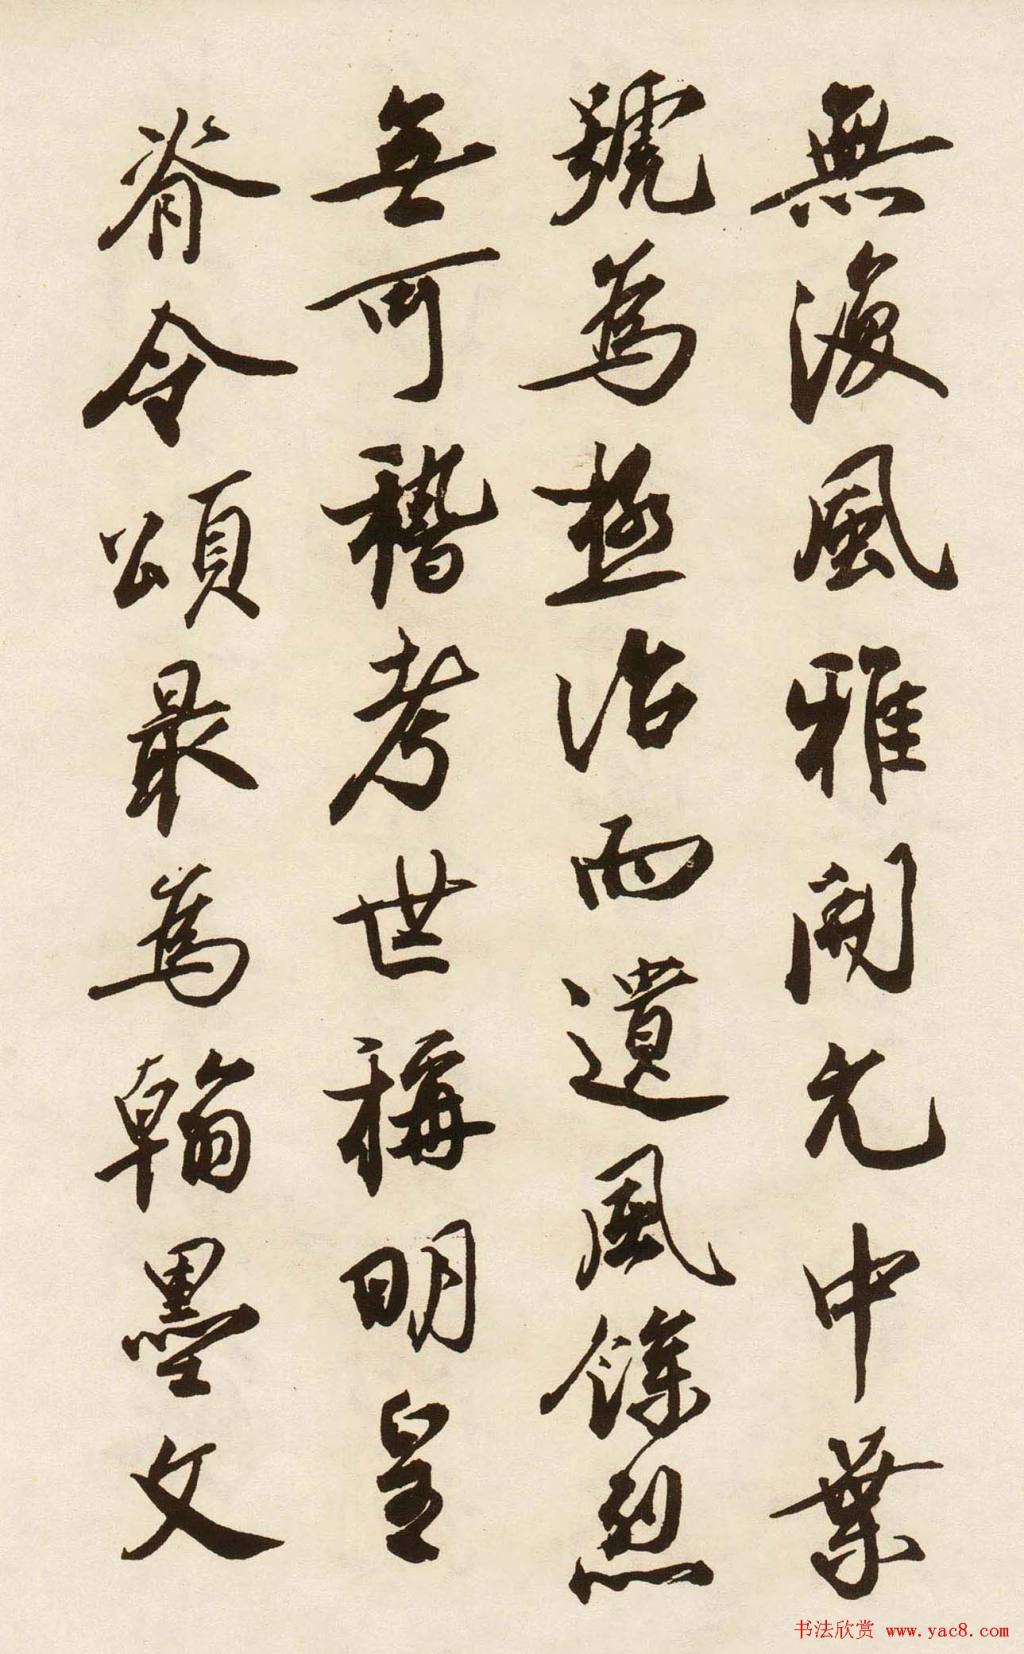 無復風雅開元中業
號為極治而遺風餘烈
無可稽考世稱明皇
脊令頌最為翰墨文
书法欣赏 www.yac8.com